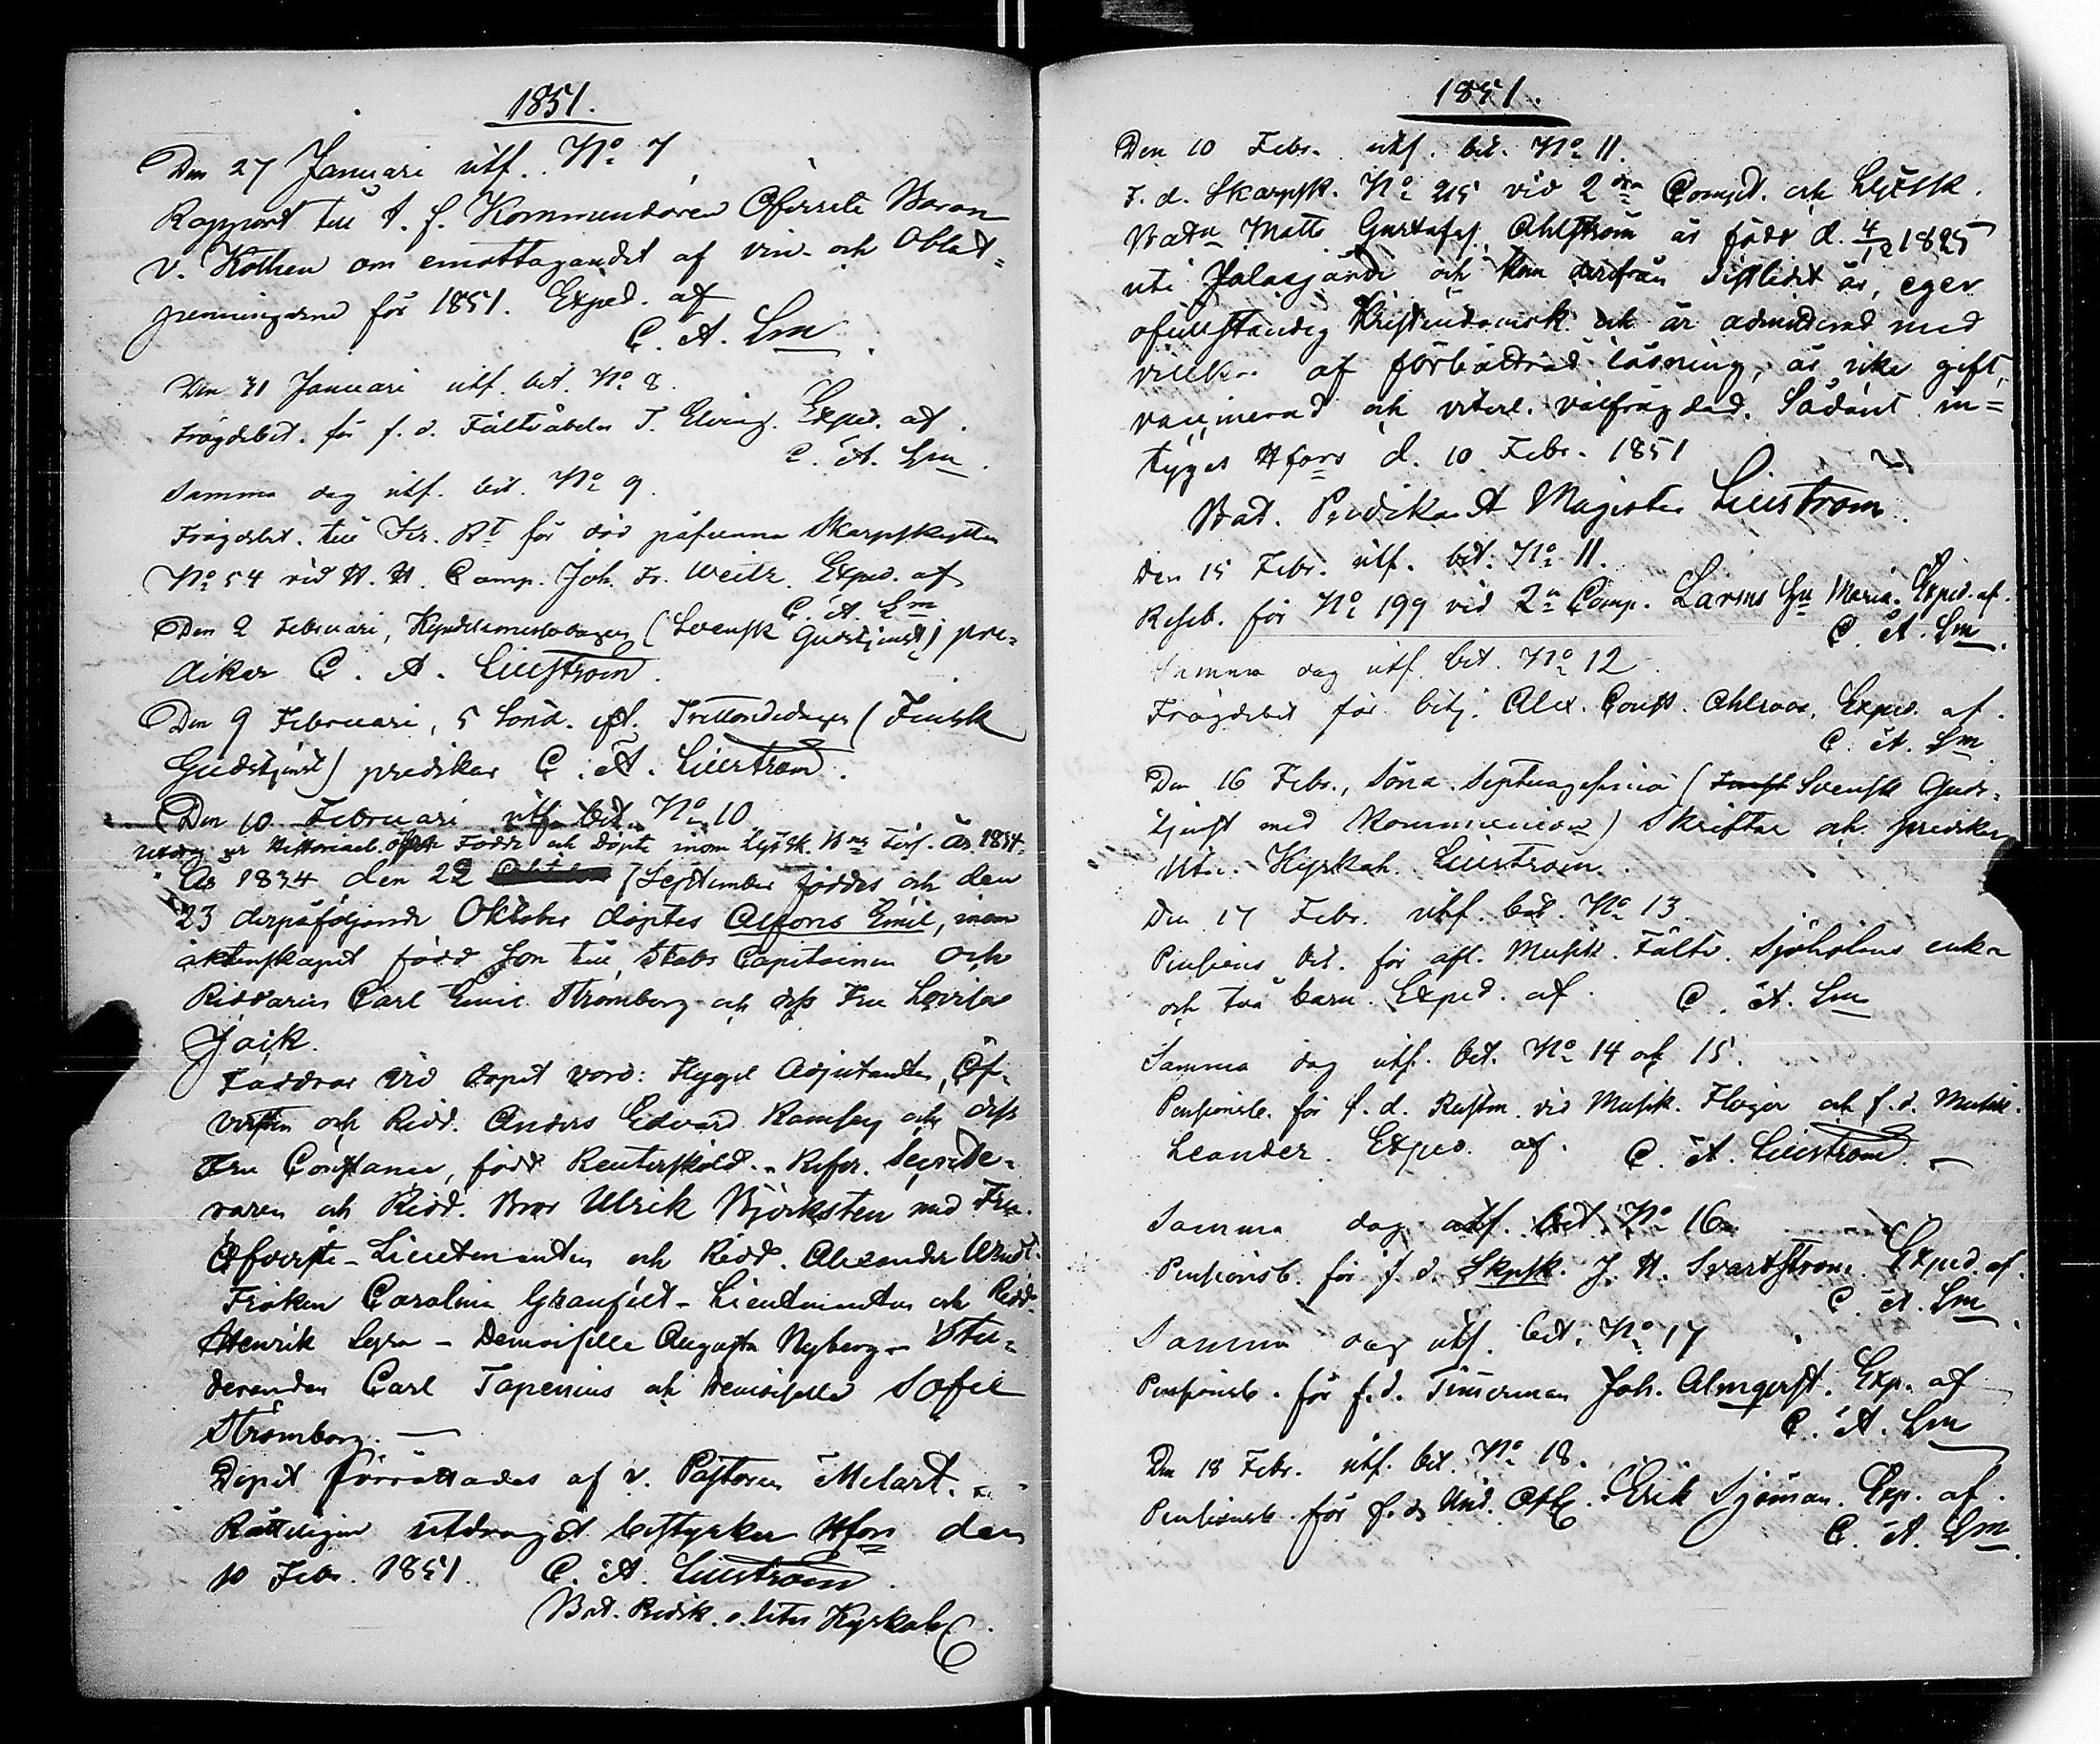 1851.
Den 27 Januari utf. No 7
Rapport till t. f. Kommendören Öfverste Baron
v. Kothen om emottagandet af vin- och Oblat-
penningarne för 1851. Exped. af
C. A. Lm
Den 31 Januari utf. bet. No 8.
Frägdebet. för f. d. Fältväbeln J. Elving. Exped. af
C. A. Lm
Samma dag utf. bet. No 9.
Frägdebet. till Rt för död påfunna Skarpskytten
No 54 vid H. H. Comp. Joh. Fr. Weitz. Exped. af
C. A. Lm
Den 2 Februari, Kyndelsmessodagen (Svensk Gudstjenst) pre-
dikar C. A. Liliström.
Den 9 Februari, 5 Sönd. eft. Trettondedagen (Finsk
Gudstjenst) predikar C. A. Liliström.
Den 10 Februari utf. bet. No 10
Utdrag ur Historial. öfver Födde och Döpte inom Lifsk. Bns Förs. År 1834.
År 1834 den 22 September föddes och den
23 derpåföljande Oktober döptes Alfons Emil, inom
äktenskapet född Son till Stabs Capitainen och
Riddaren Carl Emil Stromborg och dess Fru Lovisa
Jaik.
Faddrar vid dopet voro: Flygel Adjutanten, Öf-
versten och Ridd. Anders Edvard Ramsay och dess
Fru Constance, född Reuterskiöld - Refer. Secrete-
raren och Ridd. Bror Ulrik Björksten med Fru.
Öfverste-Lieutenanten och Ridd. Alexander Wendt.
Fröken Carolina Granfelt - Lieutenanten och Ridd.
Henrik Lyra - Demoiselle Augusta Nyberg - Stu-
deranden Carl Tapenius och Demoiselle Sofie
Stromborg. —
Dopet förrättades af v. Pastoren Melart. -
Rätteligen utdraget bestyrker Hfors den
10 Febr. 1851. C. A. Liliström.
Bat. Predik. o. Uter Kyrkoh.
1851.
Den 10 Febr. utf. bet. No 11.
F. d. Skarpsk. No 215 vid 2dra Comp. och Lifsk.
Batn Matts Gustafss. Ahlström är född d. 4/12 1825
uti Jalasjärvi och kom derifrån sistledet år, eger
ofullständig Kristendomsk. och är admitterad med
villkor af förbättrad läsning, är icke gift,
vaccinerad och veterl. välfrägdad. Sådant in-
tyges Hfors d. 10 Febr. 1851
Bat. Predikant Magister Liliström.
Den 15 Febr. utf. bet. No 11.
Reseb. för No 199 vid 2a Comp. Larins Maria. Exped. af.
C. A. Lm.
Samma dag utf. bet. No 12
Frägdebet för betj. Alex. Const. Ahlroos. Exped. af.
C. A. Lm
Den 16 Febr., Sönd. Septuagesima (Finsk Svensk Guds-
tjenst med Kommunion) Skriftar och predikar
Uter. Kyrkoh. Liliström.
Den 17 Febr. utf. bet. No 13.
Pensions bet. för afl. Musik. Fältv. Sjöholms enka
och två barn. Exped. af. C. A. Lm
Samma dag utf. bet. No 14 och 15.
Pensionsb. för f. d. Rustm. vid Musik. Flöjer och f. d. Musik.
Leander. Exped. af. C. A. Liliström. —
Samma dag utf. bet. No 16.
Pensionsb. för f. d. Skpsk. J. H. Svartström. Exped. af.
C. A. Lm.
Samma dag utf. bet. No 17
Pensionsb. för f. d. Timerman Joh. Almqvist. Exp. af
C. A. Lm
Den 18 Febr. utf. bet. No 18.
Pensionsb. för f. d. Und. Off. Erik Sjöman. Exp. af.
C. A. Lm.